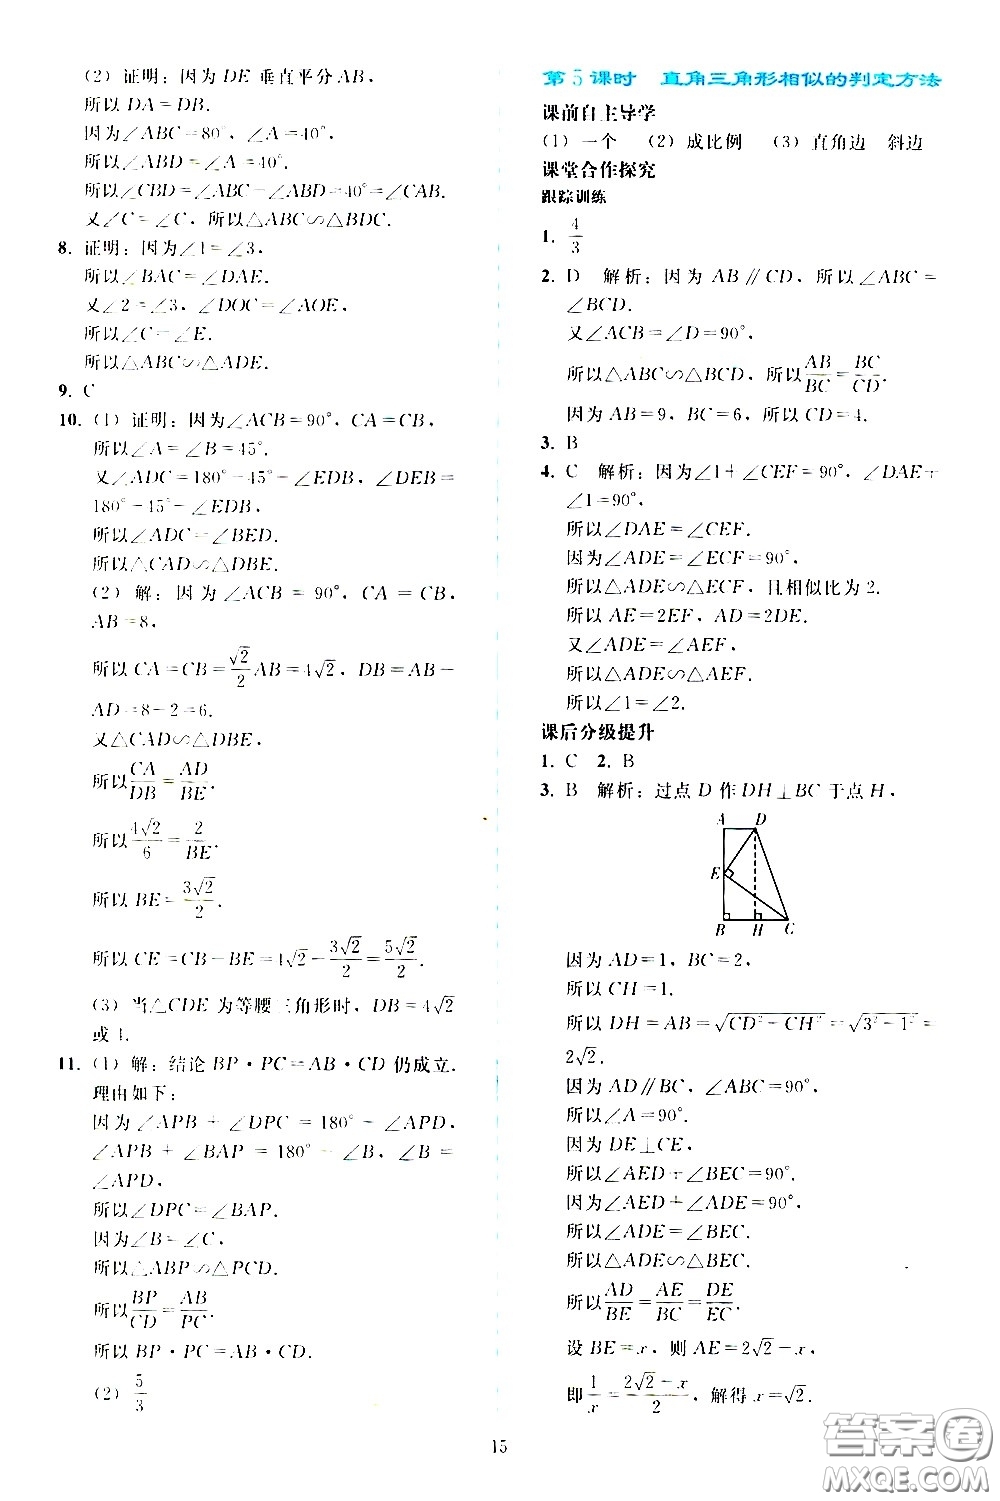 (2) 证明：因为 DE 垂直平分 AB，
所以 DA＝DB.
因为∠ABC＝80°，∠A＝40°，
所以∠ABD＝∠A＝40°.
所以∠CBD＝∠ABC－∠ABD＝40°＝∠CAB.
又∠C＝∠C，所以△ABC∽△BDC.
8. 证明：因为∠1＝∠3，
所以∠BAC＝∠DAE.
又∠2＝∠3，∠DOC＝∠AOE，
所以∠C＝∠E.
所以△ABC∽△ADE.
9. C
10. (1) 证明：因为∠ACB＝90°，CA＝CB，
所以∠A＝∠B＝45°.
又∠ADC＝180°－45°－∠EDB，∠DEB＝
180°－45°－∠EDB，
所以∠ADC＝∠BED.
所以△CAD∽△DBE.
(2) 解：因为∠ACB＝90°，CA＝CB，
AB＝8，
所以 CA＝CB＝√2/2 AB＝4√2，DB＝AB－
AD＝8－2＝6.
又△CAD∽△DBE，
所以 CA/DB＝AD/BE.
所以 4√2/6＝2/BE.
所以 BE＝3√2/2.
所以 CE＝CB－BE＝4√2－3√2/2＝5√2/2.
(3) 当△CDE 为等腰三角形时，DB＝4√2
或 4.
11. (1) 解：结论 BP·PC＝AB·CD 仍成立.
理由如下：
因为∠APB＋∠DPC＝180°－∠APD，
∠APB＋∠BAP＝180°－∠B，∠B＝
∠APD，
所以∠DPC＝∠BAP.
因为∠B＝∠C，
所以△ABP∽△PCD.
所以 BP/CD＝AB/PC.
所以 BP·PC＝AB·CD.
(2) 5/3
第 5 课时　直角三角形相似的判定方法
课前自主导学
(1) 一个　(2) 成比例　(3) 直角边　斜边
课堂合作探究
跟踪训练
1. 4/3
2. D　解析：因为 AB∥CD，所以∠ABC＝
∠BCD.
又∠ACB＝∠D＝90°，
所以△ABC∽△BCD，所以 AB/BC＝BC/CD.
因为 AB＝9，BC＝6，所以 CD＝4.
3. B
4. C　解析：因为∠1＋∠CEF＝90°，∠DAE＋
∠1＝90°，
所以∠DAE＝∠CEF.
因为∠ADE＝∠ECF＝90°，
所以△ADE∽△ECF，且相似比为 2.
所以 AE＝2EF，AD＝2DE.
又∠ADE＝∠AEF，
所以△ADE∽△AEF.
所以∠1＝∠2.
课后分级提升
1. C　2. B
3. B　解析：过点 D 作 DH⊥BC 于点 H，
A D
E
B H C
因为 AD＝1，BC＝2，
所以 CH＝1.
所以 DH＝AB＝√(CD²－CH²)＝√(3²－1²)＝
2√2.
因为 AD∥BC，∠ABC＝90°，
所以∠A＝90°.
因为 DE⊥CE，
所以∠AED＋∠BEC＝90°.
因为∠AED＋∠ADE＝90°，
所以∠ADE＝∠BEC.
所以△ADE∽△BEC.
所以 AD/BE＝AE/BC＝DE/EC.
设 BE＝x，则 AE＝2√2－x，
即 1/x＝(2√2－x)/2，解得 x＝√2.
15
答案圈
MXQE.COM